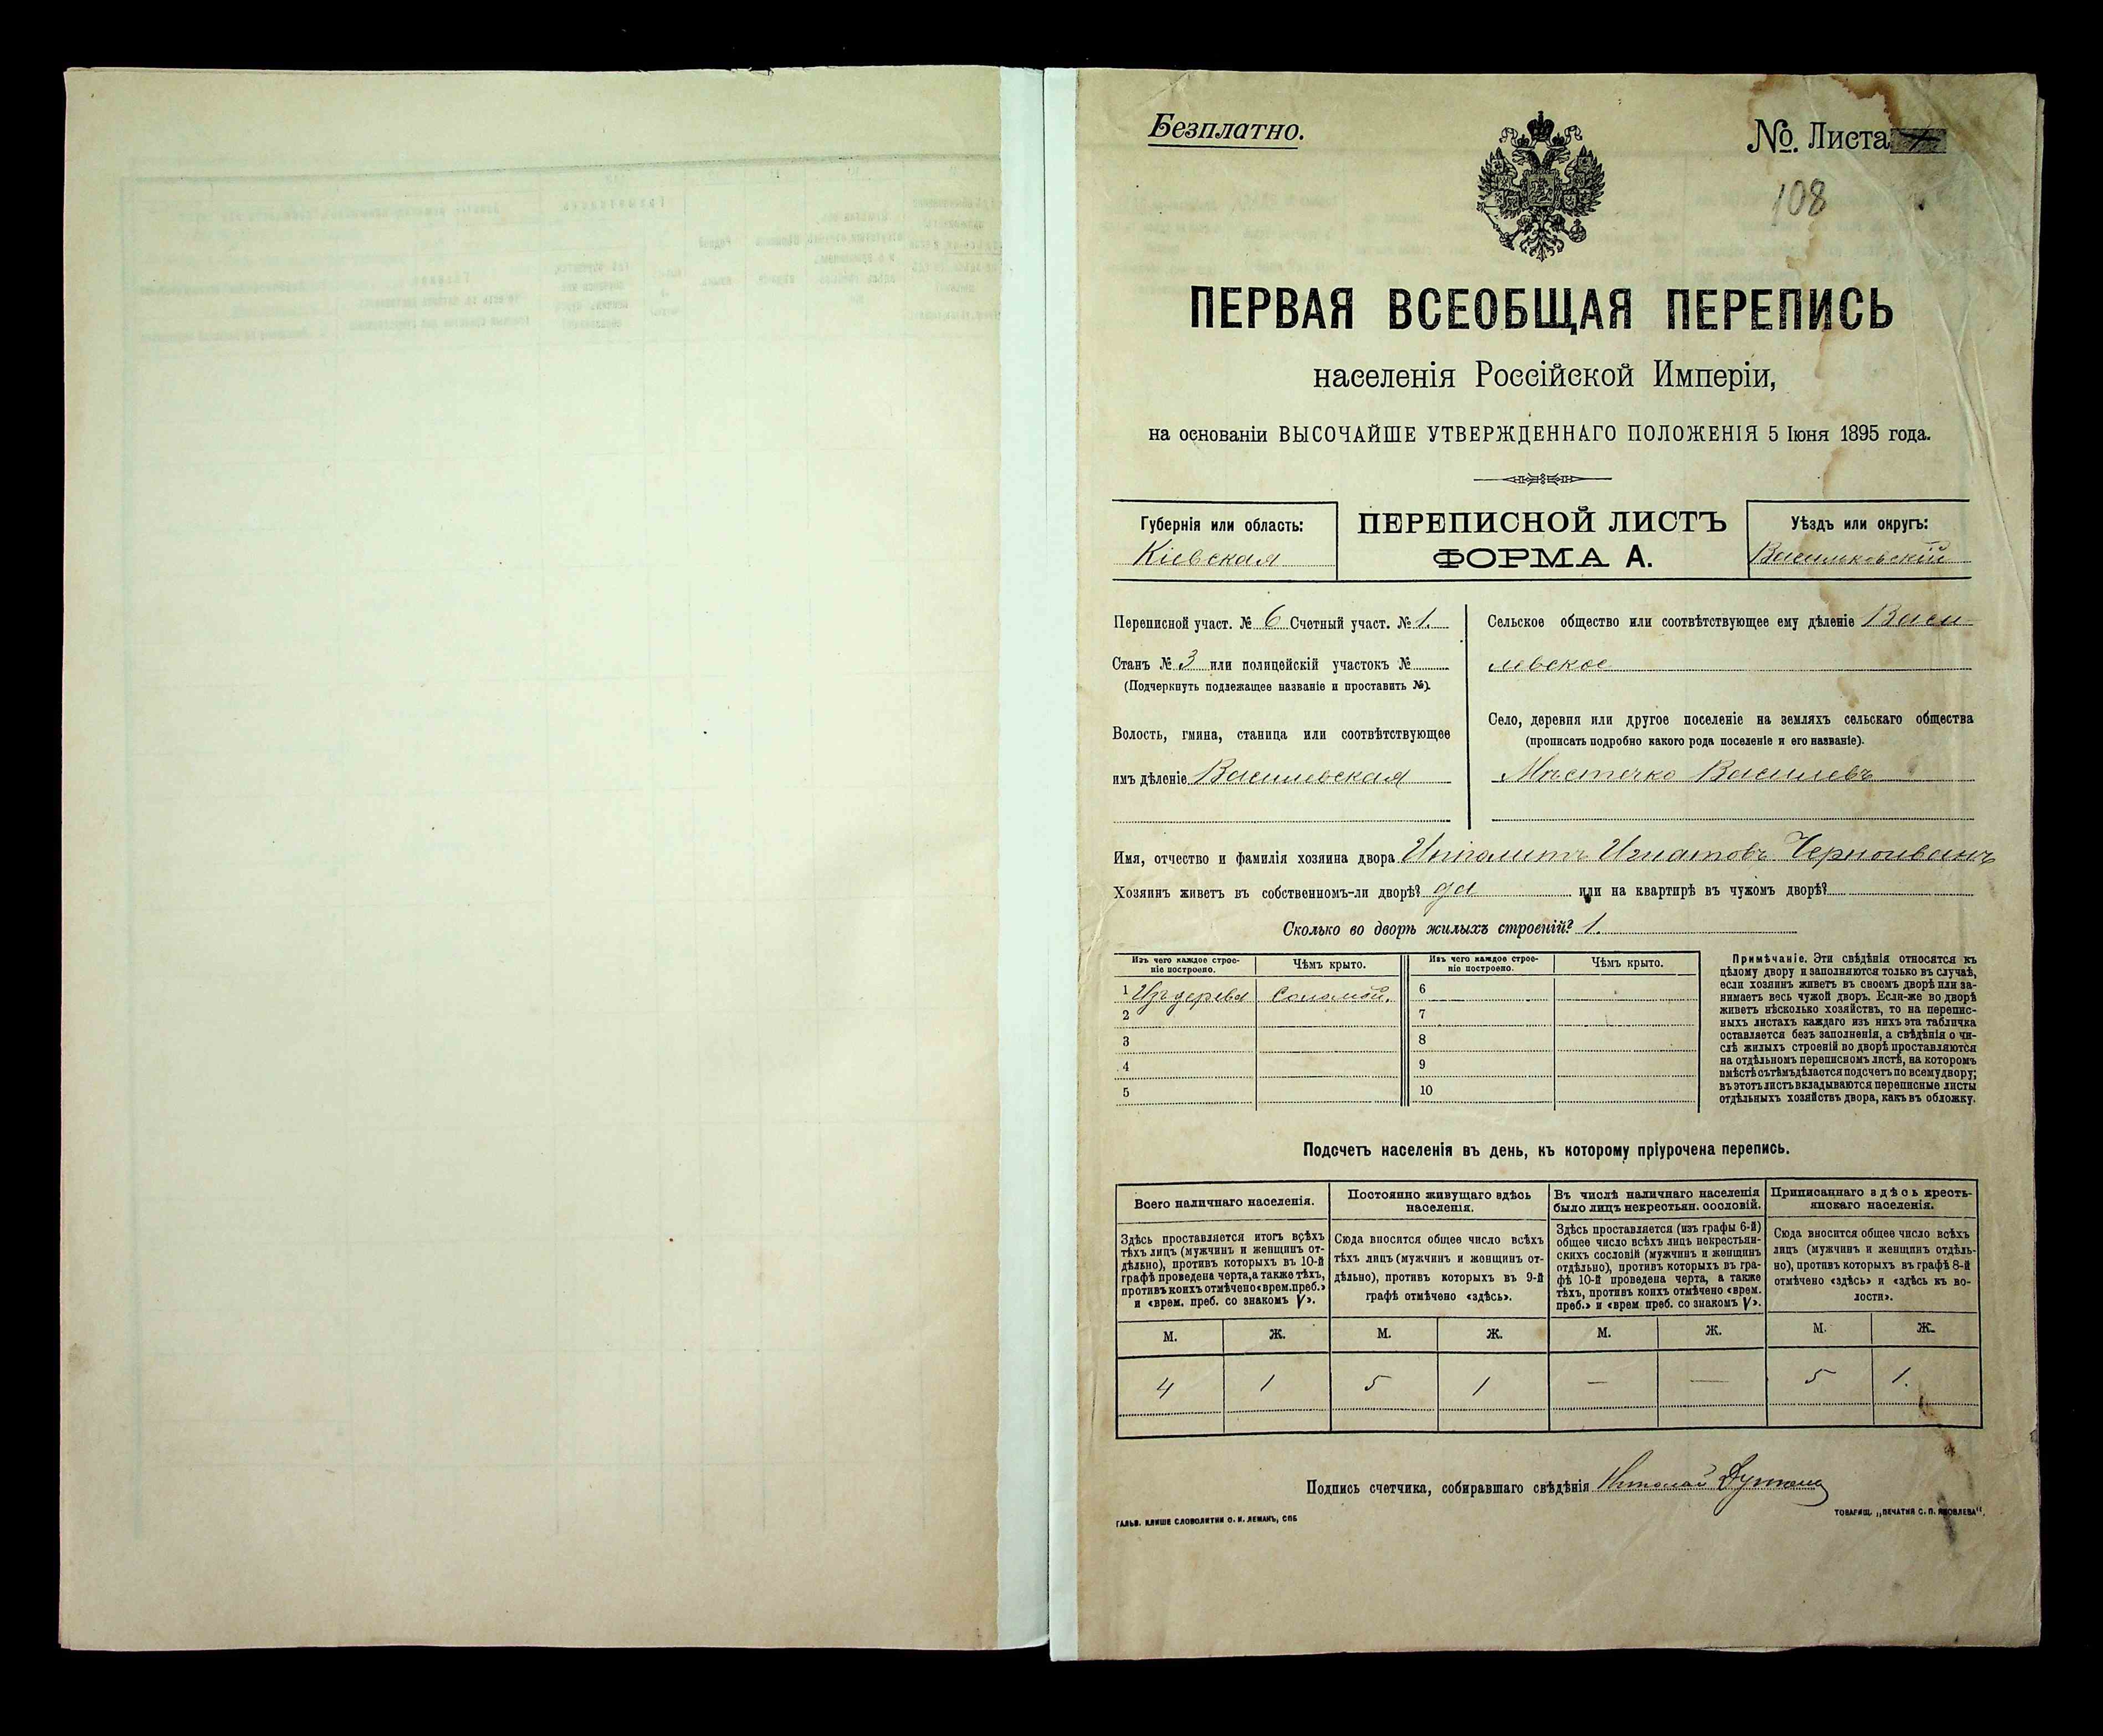 Безплатно.
No. Листа
108
ПЕРВАЯ ВСЕОБЩАЯ ПЕРЕПИСЬ
населенія Россійской Имперіи,
на основаніи ВЫСОЧАЙШЕ УТВЕРЖДЕННАГО ПОЛОЖЕНІЯ 5 Іюня 1895 года.
Губернія или область:
Кіевская
ПЕРЕПИСНОЙ ЛИСТЪ
ФОРМА А.
Уѣздъ или округъ:
Васильковскій
Переписной участ. № 6 Счетный участ. № 1.
Станъ № 3 или полицейскій участокъ №
(Подчеркнуть подлежащее названіе и проставить №).
Волость, гмина, станица или соотвѣтствующее
имъ дѣленіе Василевская
Сельское общество или соотвѣтствующее ему дѣленіе Васи-
левское
Село, деревня или другое поселеніе на земляхъ сельскаго общества
(прописать подробно какого рода поселеніе и его названіе).
Мѣстечко Василевъ
Имя, отчество и фамилія хозяина двора Ипполитъ Игнатовъ Черноиванъ
Хозяинъ живетъ въ собственномъ-ли дворѣ? да или на квартирѣ въ чужомъ дворѣ?
Сколько во дворѣ жилыхъ строеній? 1.
Изъ чего каждое строе-
ніе построено.
Чѣмъ крыто.
Изъ чего каждое строе-
ніе построено.
Чѣмъ крыто.
1 Изъ дерева Соломой. 6
2 7
3 8
4 9
5 10
Примѣчаніе. Эти свѣдѣнія относятся къ
цѣлому двору и заполняются только въ случаѣ,
если хозяинъ живетъ въ своемъ дворѣ или за-
нимаетъ весь чужой дворъ. Если-же во дворѣ
живетъ нѣсколько хозяйствъ, то на перепис-
ныхъ листахъ каждаго изъ нихъ эта табличка
оставляется безъ заполненія, а свѣдѣнія о чи-
слѣ жилыхъ строеній во дворѣ проставляются
на отдѣльномъ переписномъ листѣ, на которомъ
вмѣстѣ съ тѣмъ дѣлается подсчетъ по всему двору;
въ этотъ листъ вкладываются переписные листы
отдѣльныхъ хозяйствъ двора, какъ въ обложку.
Подсчетъ населенія въ день, къ которому пріурочена перепись.
Всего наличнаго населенія.
Здѣсь проставляется итогъ всѣхъ
тѣхъ лицъ (мужчинъ и женщинъ от-
дѣльно), противъ которыхъ въ 10-й
графѣ проведена черта, а также тѣхъ,
противъ коихъ отмѣчено «врем. преб.»
и «врем. преб. со знакомъ V».
Постоянно живущаго здѣсь
населенія.
Сюда вносится общее число всѣхъ
тѣхъ лицъ (мужчинъ и женщинъ от-
дѣльно), противъ которыхъ въ 9-й
графѣ отмѣчено «здѣсь».
Въ числѣ наличнаго населенія
было лицъ некрестьян. сословій.
Здѣсь проставляется (изъ графы 6-й)
общее число всѣхъ лицъ некрестьян-
скихъ сословій (мужчинъ и женщинъ
отдѣльно), противъ которыхъ въ гра-
фѣ 10-й проведена черта, а также
тѣхъ, противъ коихъ отмѣчено «врем.
преб.» и «врем преб. со знакомъ V».
Приписаннаго здѣсь кресть-
янскаго населенія.
Сюда вносится общее число всѣхъ
лицъ (мужчинъ и женщинъ отдѣль-
но), противъ которыхъ въ графѣ 8-й
отмѣчено «здѣсь» и «здѣсь къ во-
лости».
М. Ж. М. Ж. М. Ж. М. Ж.
4 1 5 1 — — 5 1.
Подпись счетчика, собиравшаго свѣдѣнія Николай
ГАЛЬВ. КЛИШЕ СЛОВОЛИТНИ О. И. ЛЕМАНЪ, СПБ
ТОВАРИЩ. „ПЕЧАТНЯ С. П. ЯКОВЛЕВА".